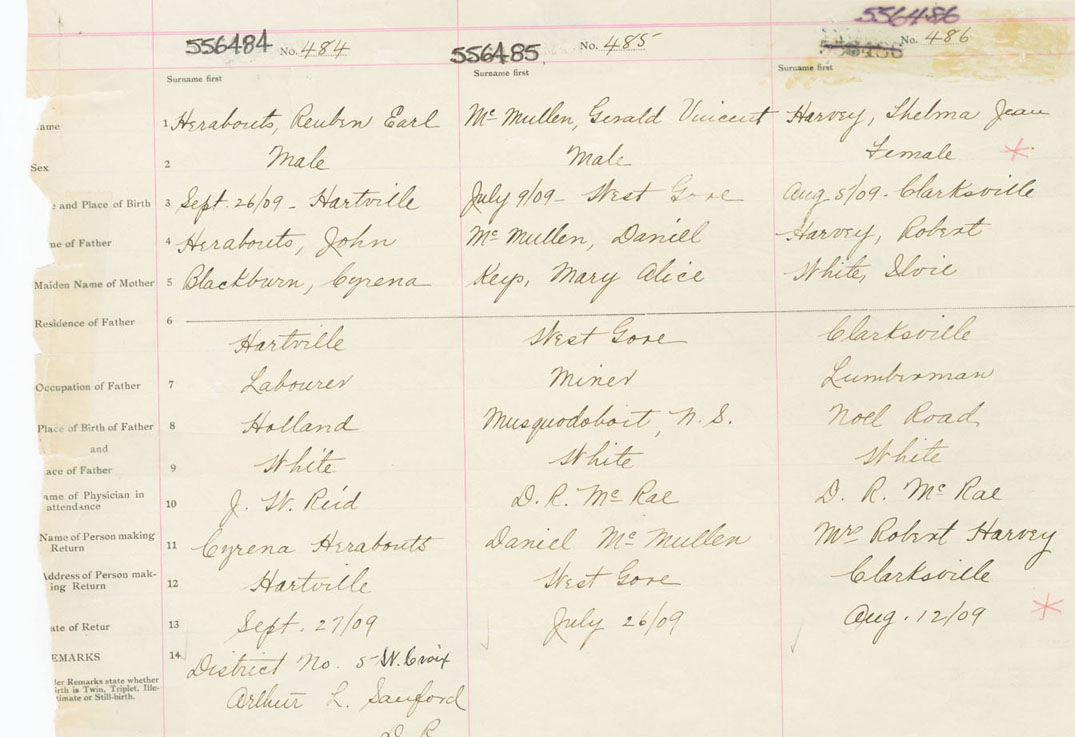 556486
556484 No. 484 556485 No. 485 No. 486
Surname first Surname first Surname first
ame 1 Herabouts, Reuben Earl Mc Mullen, Gerald Vincent Harvey, Thelma Jean
Sex 2 Male Male Female
e and Place of Birth 3 Sept. 26/09 - Hartville July 9/09 - West Gore Aug 5/09 - Clarksville
me of Father 4 Herabouts, John Mc Mullen, Daniel Harvey, Robert
Maiden Name of Mother 5 Blackburn, Cyrena Keys, Mary Alice White,
Residence of Father 6 Hartville West Gore Clarksville
Occupation of Father 7 Labourer Miner Lumberman
Place of Birth of Father 8 Holland Musquodoboit, N. S. Noel Road
and
ace of Father 9 White White White
ame of Physician in
attendance 10 J. W. Reid D. R. Mc Rae D. R. Mc Rae
Name of Person making
Return 11 Cyrena Herabouts Daniel Mc Mullen Mrs Robert Harvey
Address of Person mak-
ing Return 12 Hartville West Gore Clarksville
ate of Retur 13 Sept. 27/09 July 26/09 Aug. 12/09
EMARKS 14 District No. 5 W. Croix
der Remarks state whether
irth is Twin, Triplet, Ille-
timate or Still-birth.
Arthur L. Sanford
D. R.